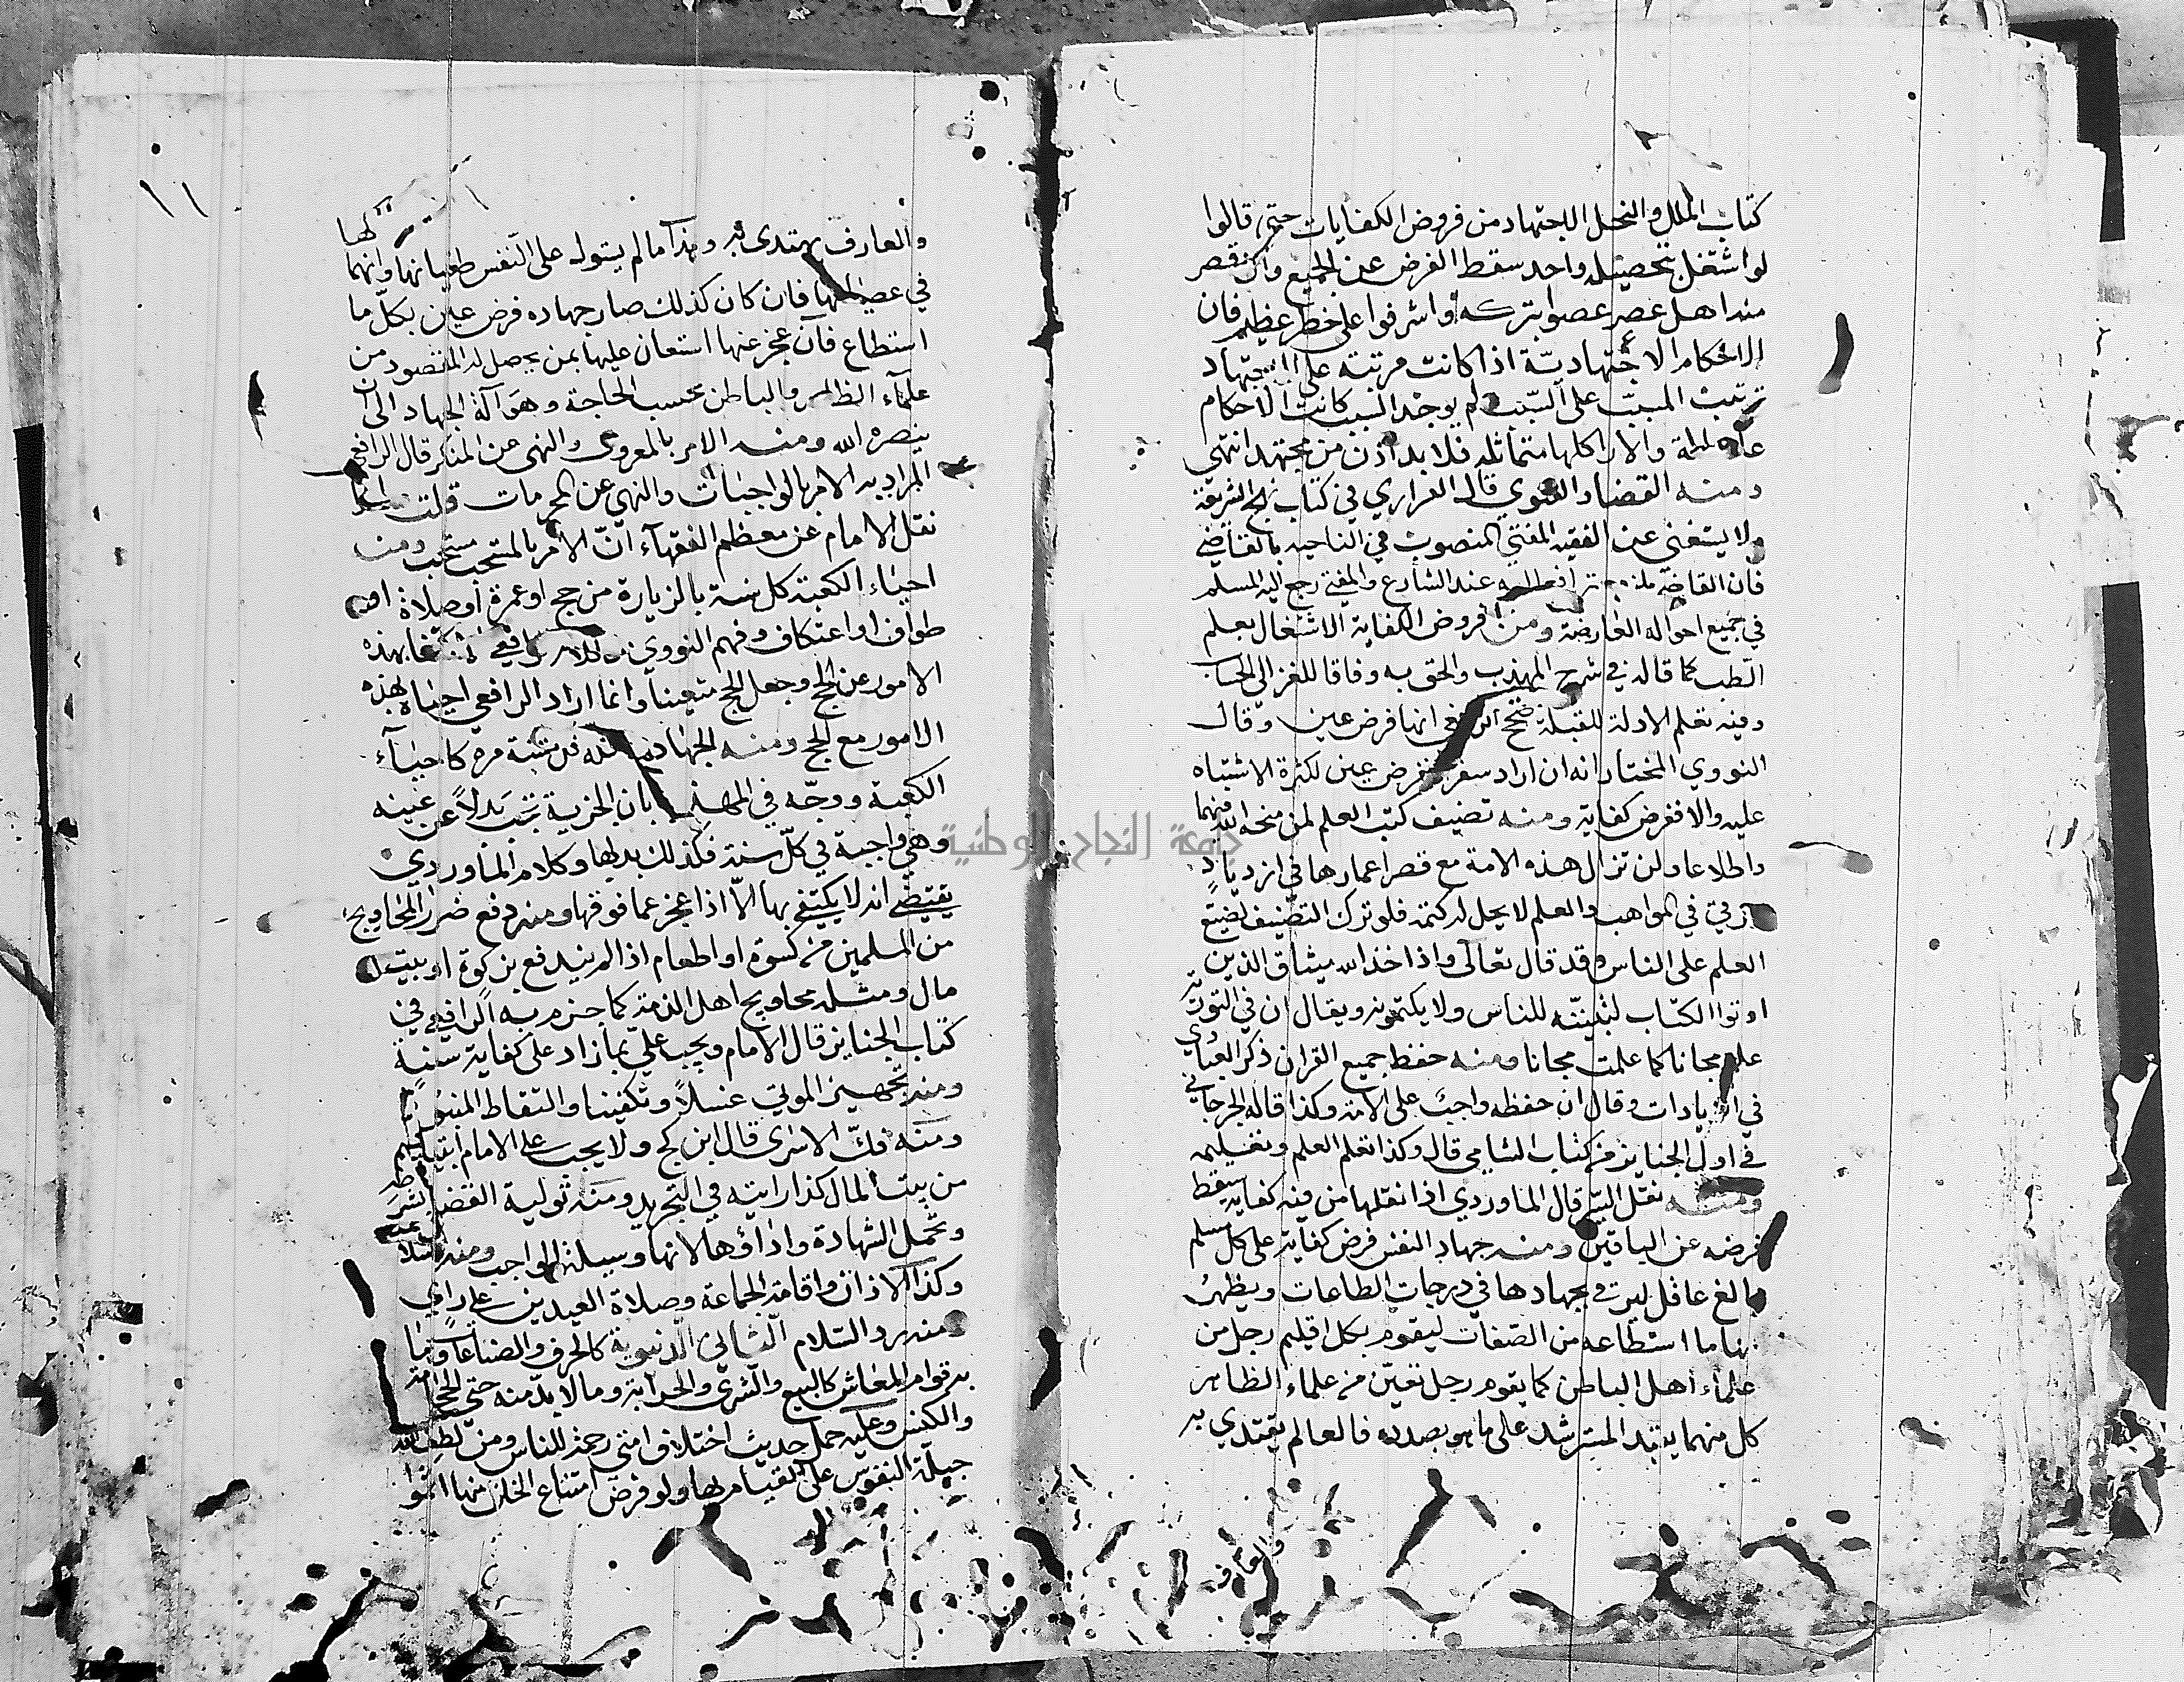 كتاب الملل والنحل الاجتهاد من فروض الكفايات حتى قالوا
لو اشتغل بتحصيله واحد سقط الفرض عن الجميع وان قصر
منه اهل عصر عصوا بتركه واشرفوا على خطر عظيم فان
الاحكام الاجتهادية اذا كانت مرتبة على الاجتهاد
ترتيب المسبب على السبب ولم يوجد السبب كانت الاحكام
عاطلة والاراء كلها متماثلة فلا بد اذن من مجتهد انتهى
ومنه القضاء والفتوى قال الفزاري في كتاب نهج الشريعة
ولا يستغنى عن الفقيه المفتي المنصوب في الناحية بالقاضي
فان القاضي عند الشارع والمفتي رجع اليه المسلم
في جميع احواله العارضة ومن فروض الكفاية الاشتغال بعلم
الطب كما قاله في شرح المهذب والحق به وفاقا للغزالي الحساب
ومنه تعلم الادلة للقبلة صحح الرافعي انها فرض عين وقال
النووي المختار انه ان اراد سفرا ففرض عين لكثرة الاشتباه
عليه والا ففرض كفاية ومنه تصنيف كتب العلم لمن منحه الله فهما
واطلاعا ولن تزال هذه الامة مع قصر اعمارها في ازدياد
وترقي في المواهب والعلم لا يحل له كتمه فلو ترك التصنيف لضيع
العلم على الناس وقد قال تعالى واذ اخذ الله ميثاق الذين
اوتوا الكتاب لتبيننه للناس ولا يكتمونه ويقال ان في التورية
علم مجانا كما علمت مجانا ومنه حفظ جميع القران ذكر العبادي
في الزيادات وقال ان حفظه واجب على الامة وكذا قاله الجرجاني
في اول الجنايز من كتاب الشافي قال وكذا تعلم العلم وتعليمه
ومنه نقل السير قال الماوردي اذا نقلها من فيه كفاية سقط
فرضه عن الباقين ومنه جهاد النفس فرض كفاية على كل مسلم
بالغ عاقل ليرقى بجهادها في درجات الطاعات ويظهر
بها ما استطاعه من الصفات ليقوم بكل اقليم رجل من
علماء اهل الباطن كما يقوم رجل تعين من علماء الظاهر
كل منهما يفيد المسترشد على ما هو بصدده فالعالم يقتدي به
والعارف
١١
والعارف يهتدى به وهذا ما لم يستول على النفس طغيانها وانهماكها
في عصيانها فان كان كذلك صار جهاده فرض عين بكل ما
استطاع فان عجز عنها استعان عليها بمن يحصل له المقصود من
علماء الظاهر والباطن بحسب الحاجة وهو آلة الجهاد الى ان
ينصره الله ومنه الامر بالمعروف والنهي عن المنكر قال الرافعي
المراد به الامر بالواجبات والنهي عن المحرمات قلت
نقل الامام عن معظم الفقهاء ان الامر بالمستحب مستحب ومنه
احياء الكعبة كل سنة بالزيارة من حج او عمرة او صلاة او
طواف او اعتكاف وفهم النووي من كلام الرافعي بهذه
الامور عن الحج وجعل الحج متعينا وانما اراد الرافعي احياه بهذه
الامور مع الحج ومنه الجهاد مرة كاحياء
الكعبة ووجه في المهذب بان الجزية تجب بدلا عن عينه
وهي واجبة في كل سنة فكذلك بدلها وكلام الماوردي
يقتضي انه لا يكتفي بها الا اذا عجز عما فوقها ومنه دفع ضرر المحاويج
من المسلمين من كسوة او اطعام اذا لم يندفع بزكوة او بيت
مال ومثله محاويج اهل الذمة كما جزم به الرافعي في
كتاب الجنايز قال الامام ويجب عليّ بما زاد على كفاية سنة
ومنه تجهيز الموتى غسلا وتكفينا والتقاط المنبوذ
ومنه فك الاسرى قال ابن كج ولا يجب على الامام
من بيت المال كذا رايته في التجريد ومنه تولية القضا بشرطه
وتحمل الشهادة واداؤها لانها وسيلة الى واجب ومنه
وكذا الاذان واقامة الجماعة وصلاة العيدين على راي
ومنه رد السلام الثاني الدنيوية كالحرف والصناعات وما
به قوام المعاش كالبيع والشرى والحراثة وما لا بد منه حتى الحجامة
والكنس وعليه حمل حديث اختلاف امتي رحمة للناس ومن لطف الله
جبلة النفوس على القيام بها ولو فرض امتناع الخلق منها اثموا
جامعة النجاح الوطنية